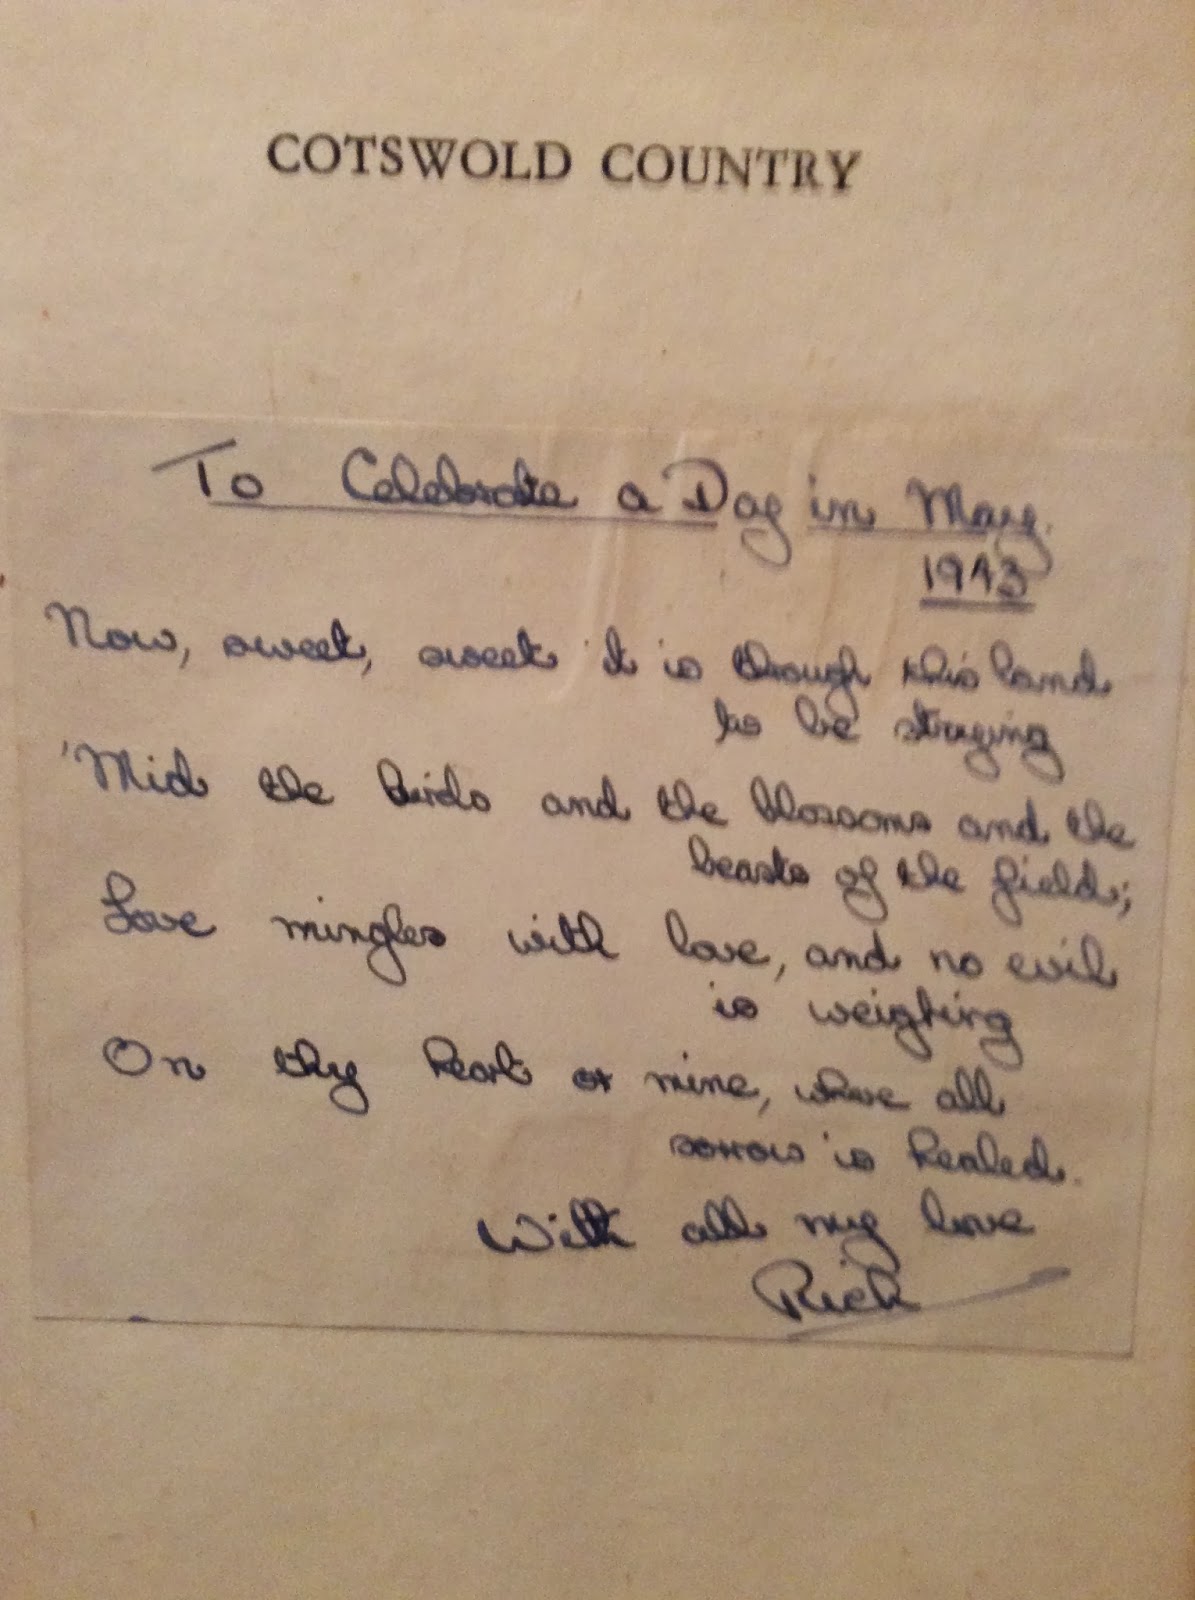 COTSWOLD COUNTRY
To Celebrate a Day in May.
1943
Now, sweet, sweet it is through this land
to be straying
'Mid the birds and the blossoms and the
beasts of the field;
Love mingles with love, and no evil
is weighing
On thy heart or mine, where all
sorrow is healed.
With all my love
Rick